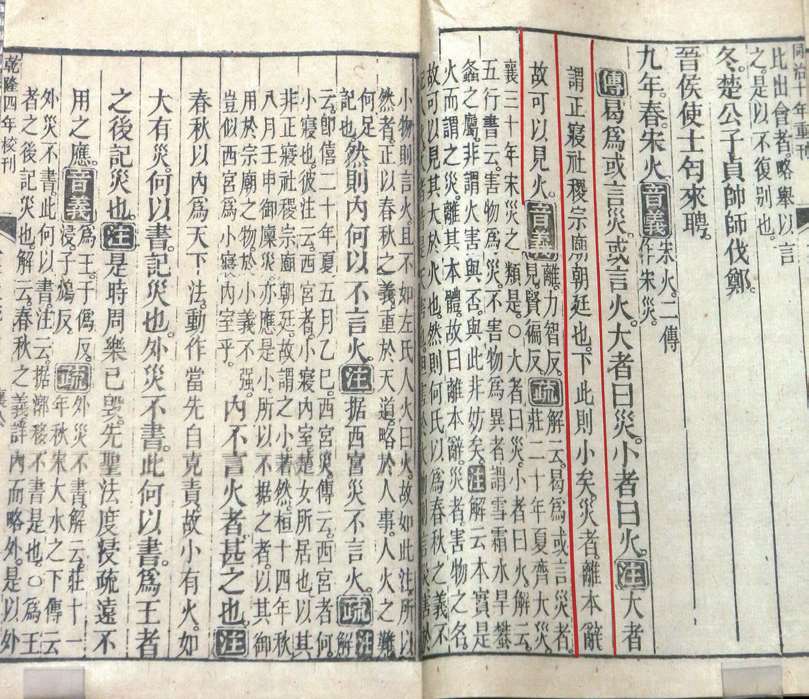 同治十年重刊
比出會者。略舉以言
之。是以不復别也。
冬。楚公子貞帥師伐鄭。
晉侯使士匄來聘。
九年。春。宋火。音義宋火。二傳
作宋災。
傳曷爲或言災。或言火。大者曰災。小者曰火。注大者
謂正寢社稷宗廟朝廷也。下此則小矣。災者離本辭
故可以見火。音義離力智反。
見賢徧反。疏解云。曷爲或言災者。
莊二十年夏。齊大災。
襄三十年。宋災之類是。○大者曰災。小者曰火。解云。
五行書云。害物爲災。不害物爲異者。謂雪霜水旱
螽之屬。非謂火害與否。與此非妨矣。注解云。本實是
火而謂之災。離其本體。故曰離本辭。災者害物之名
故可以見其大於火也。然則何氏以爲春秋之義不
小物則言火。且不如左氏人火曰火。故如此注。所以
然者。正以春秋之義重於天道。略於人事。人火之難
何足
記也。然則内何以不言火。注据西宮災不言火。疏注
解
云。即僖二十年夏五月乙巳。西宮災。傳云。西宮者何
小寢也。彼注云。西宮者。小寢内室。楚女所居也。以其
非正寢社稷宗廟朝廷。故謂之小。若然。桓十四年秋
八月壬申。御廩災。亦應是小。所以不据之者。以其御
用於宗廟之物。於小義不强。
豈似西宮爲小寢内室乎。内不言火者。甚之也。注
春秋以内爲天下法。動作當先自克責。故小有火。如
大有災。何以書。記災也。外災不書。此何以書。爲王者
之後記災也。注是時周樂已毁。先聖法度浸疏遠不
用之應。音義爲王。于僞反。
浸子鴆反。疏外災不書。解云。莊十一
年秋。宋大水之下。傳云
外災不書。此何以書。注云。据漷移不書是也。○爲王
者之後記災也。解云。春秋之義。詳内而略外。是以外
乾隆四年校刊